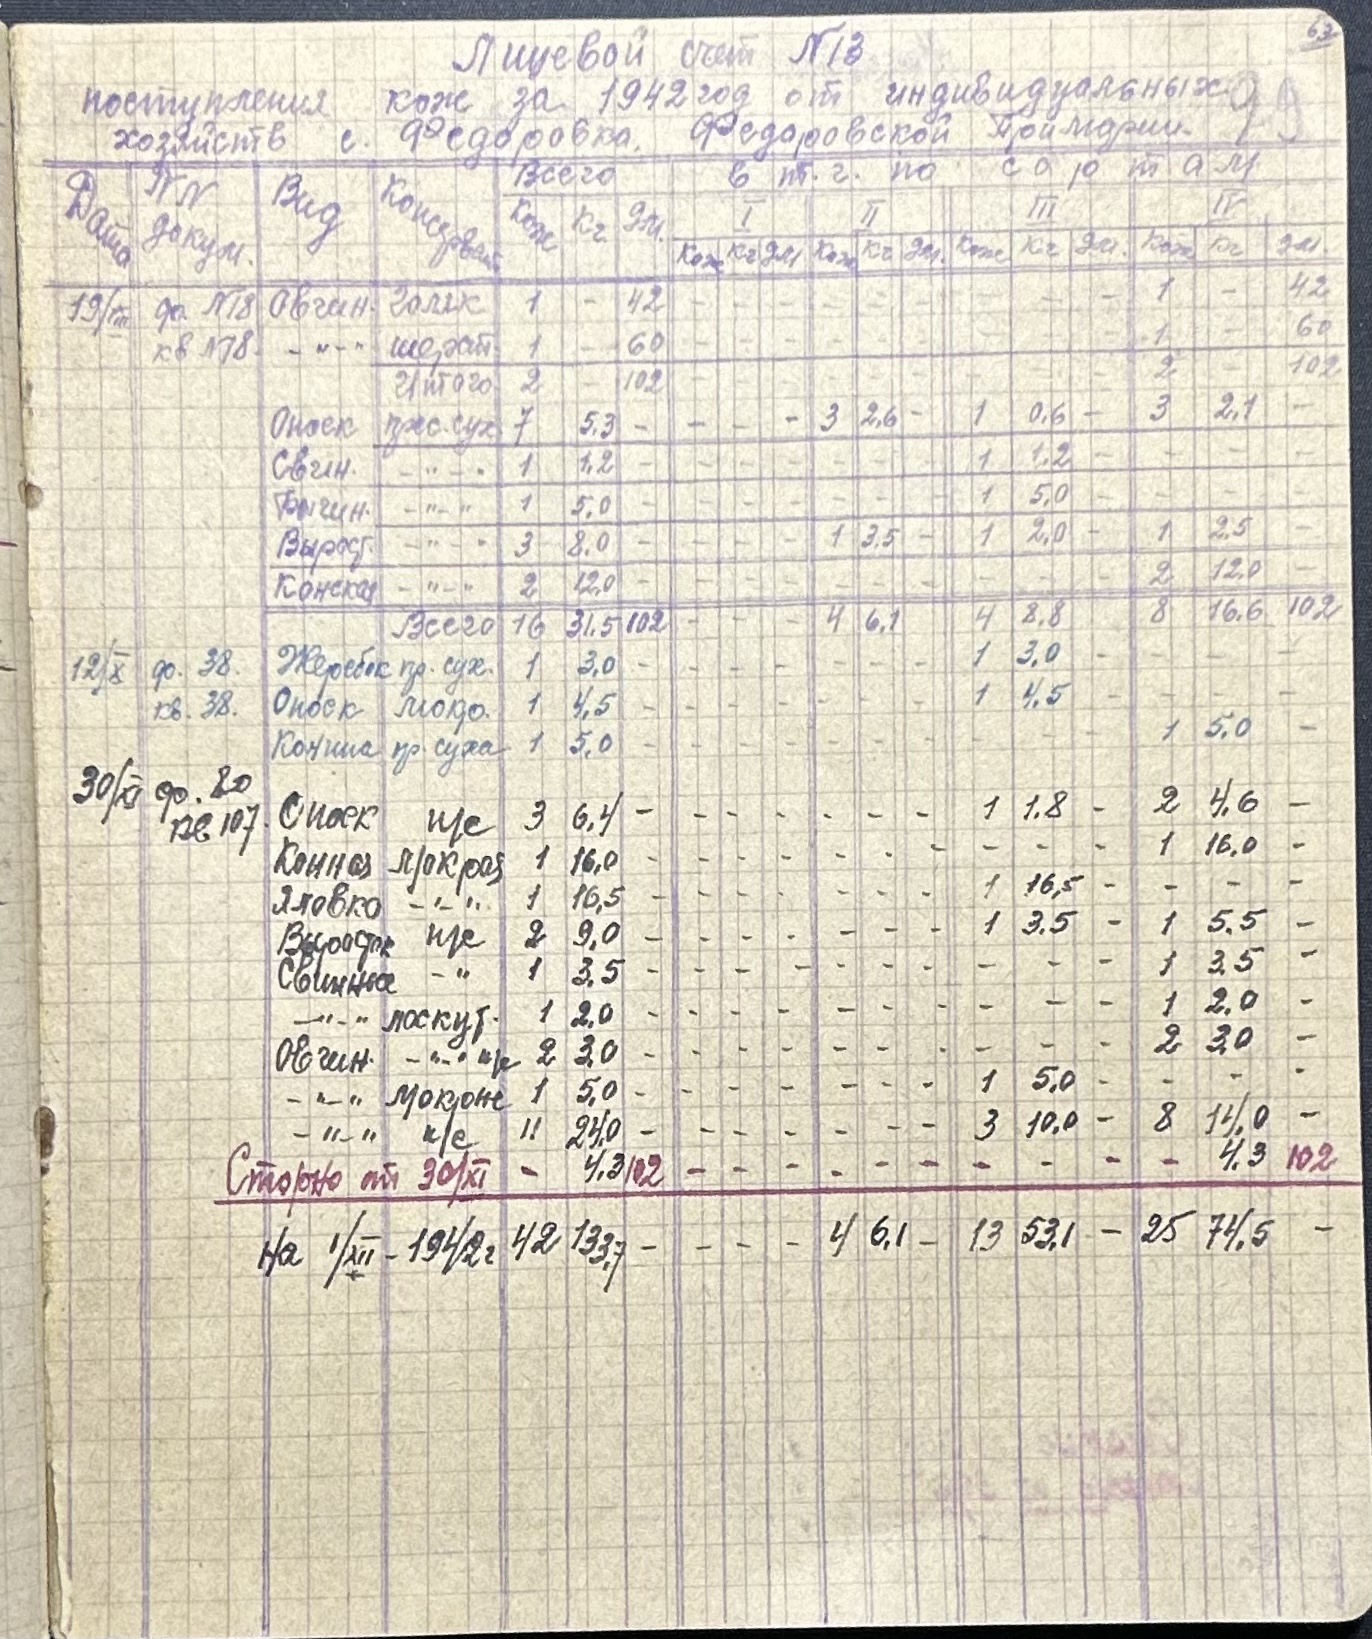 63
Лицевой счет N13
поступления кож за 1942 год от индивидуальных
хозяйств с. Федоровка, Федоровской Примэрии.
Дата NN докум. Вид Консерват. Всего в т.ч. по сортам
Кож Кг Дм. I II III IV
Кож Кг Дм Кож Кг Дм. Кож Кг Дм. Кож Кг Дм.
19/VIII ф. N18 Овчин. Голяк 1 - 42 - - - - - - - - - 1 - 42
кв N78 -"-" шерст. 1 - 60 - - - - - - - - - 1 - 60
Итого 2 - 102 - - - - - - - - - 2 102
Опоек прс.сух 7 5.3 - - - - 3 2,6 - 1 0,6 - 3 2,1 -
Свин. -"-" 1 1.2 - - - - - - - 1 1.2 - - - -
Бычин. -"-" 1 5,0 - - - - - - - 1 5,0 - - - -
Вырост. -"-" 3 8.0 - - - - 1 3.5 - 1 2,0 - 1 2.5 -
Конская -"-" 2 12.0 - - - - - - - - - - 2 12.0 -
Всего 16 31.5 102 - - - 4 6,1 4 8,8 8 16.6 102
12/X ф. 38. Жеребок пр. сух. 1 3,0 - - - - - - - 1 3,0 - - - -
кв. 38. Опоек мокр. 1 4,5 - - - - - - - 1 4,5 - - - -
Конина пр. суха 1 5,0 - - - - - - - - - - 1 5.0 -
30/XI ф. 80
кв. 107. Опоек п/с 3 6,4 - - - - - - - 1 1.8 - 2 4.6 -
Конная Мокрая 1 16,0 - - - - - - - - - - 1 16.0 -
Яловка -"-" 1 16,5 - - - - - - - 1 16,5 - - - -
Выросток п/с 2 9,0 - - - - - - - 1 3.5 - 1 5.5 -
Свинная -" 1 3,5 - - - - - - - - - - 1 3.5 -
-"-" лоскут. 1 2,0 - - - - - - - - - - 1 2.0 -
Овчин. -"-" п/с 2 3,0 - - - - - - - - - - 2 3,0 -
-"-" Мокрые 1 5,0 - - - - - - - 1 5,0 - - - -
-"-" п/с 11 24,0 - - - - - - - 3 10,0 - 8 14,0 -
Сторно от 30/XI - 4,3 102 - - - - - - - - - - 4.3 102
На 1/XII - 1942г 42 133,7 - - - - 4 6,1 - 13 53,1 - 25 74,5 -